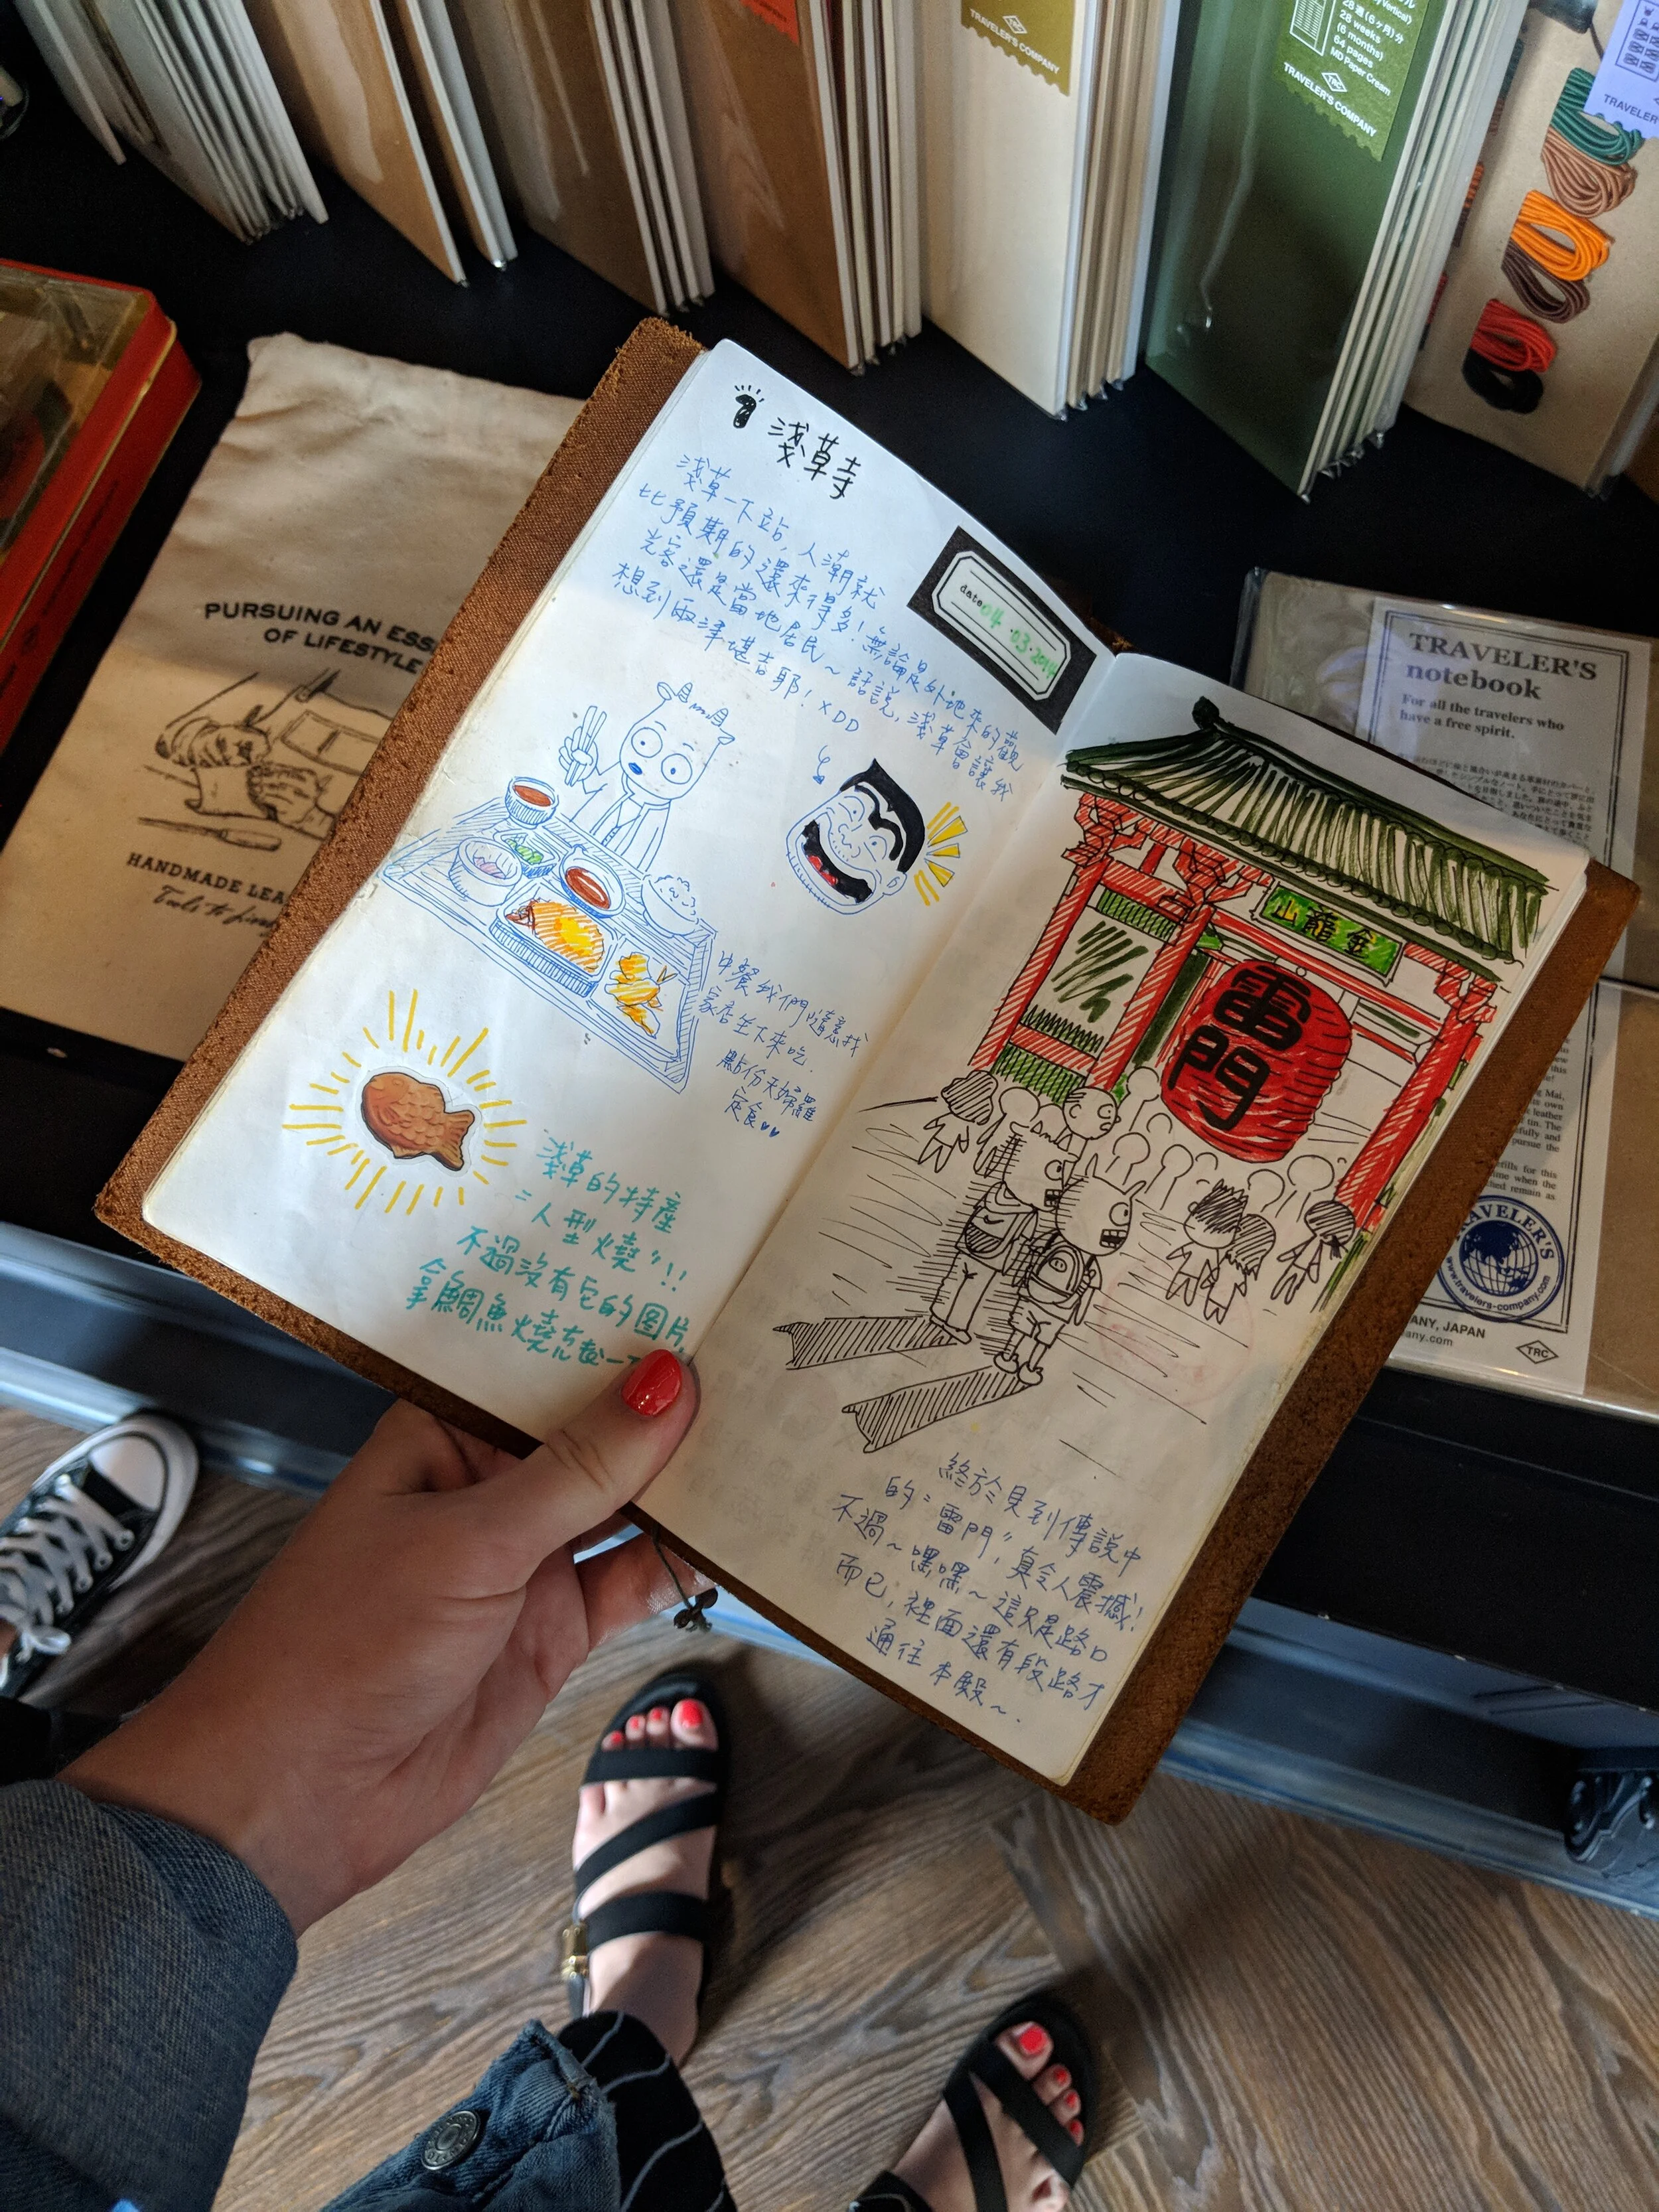 TRAVELER'S COMPANY
28週(6ヶ月)分
28 weeks
(6 months)
64 pages
MD Paper Cream
TRC
TRAVELER'S COMPANY
TRAVELER
PURSUING AN ESS
OF LIFESTYLE
HANDMADE LEA
Tools to
1 淺草寺
淺草一下站, 人潮就
比預期的還來得多! 無論是外地來的觀
光客還是當地居民～ 話說, 淺草會讓我
想到兩津堪吉耶! XDD
date 04.03.2014
中餐我們隨意找
家店坐下來吃.
點份天婦羅
定食♥♥
淺草的特產
"人型燒"!!
不過沒有它的图片,
拿鯛魚燒充數一下
金龍山
雷門
終於見到傳說中
的"雷門", 真令人震撼!
不過～嘿嘿～這只是路口
而已, 裡面還有段路才
通往本殿～.
TRAVELER'S
notebook
For all the travelers who
have a free spirit.
TRAVELER'S
www.travelers-company.com
ANY, JAPAN
any.com
TRC